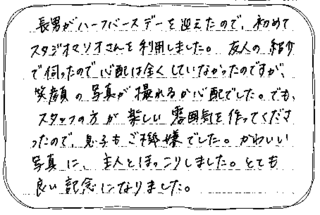 長男がハーフバースデーを迎えたので、初めて
スタジオマリオさんを利用しました。友人の紹介
で伺ったので心配は全くしていなかったのですが、
笑顔の写真が撮れるか心配でした。でも、
スタッフの方が楽しい雰囲気を作ってくださ
ったので、息子もご機嫌でした。かわいい
写真に、主人とほっこりしました。とても
良い記念になりました。